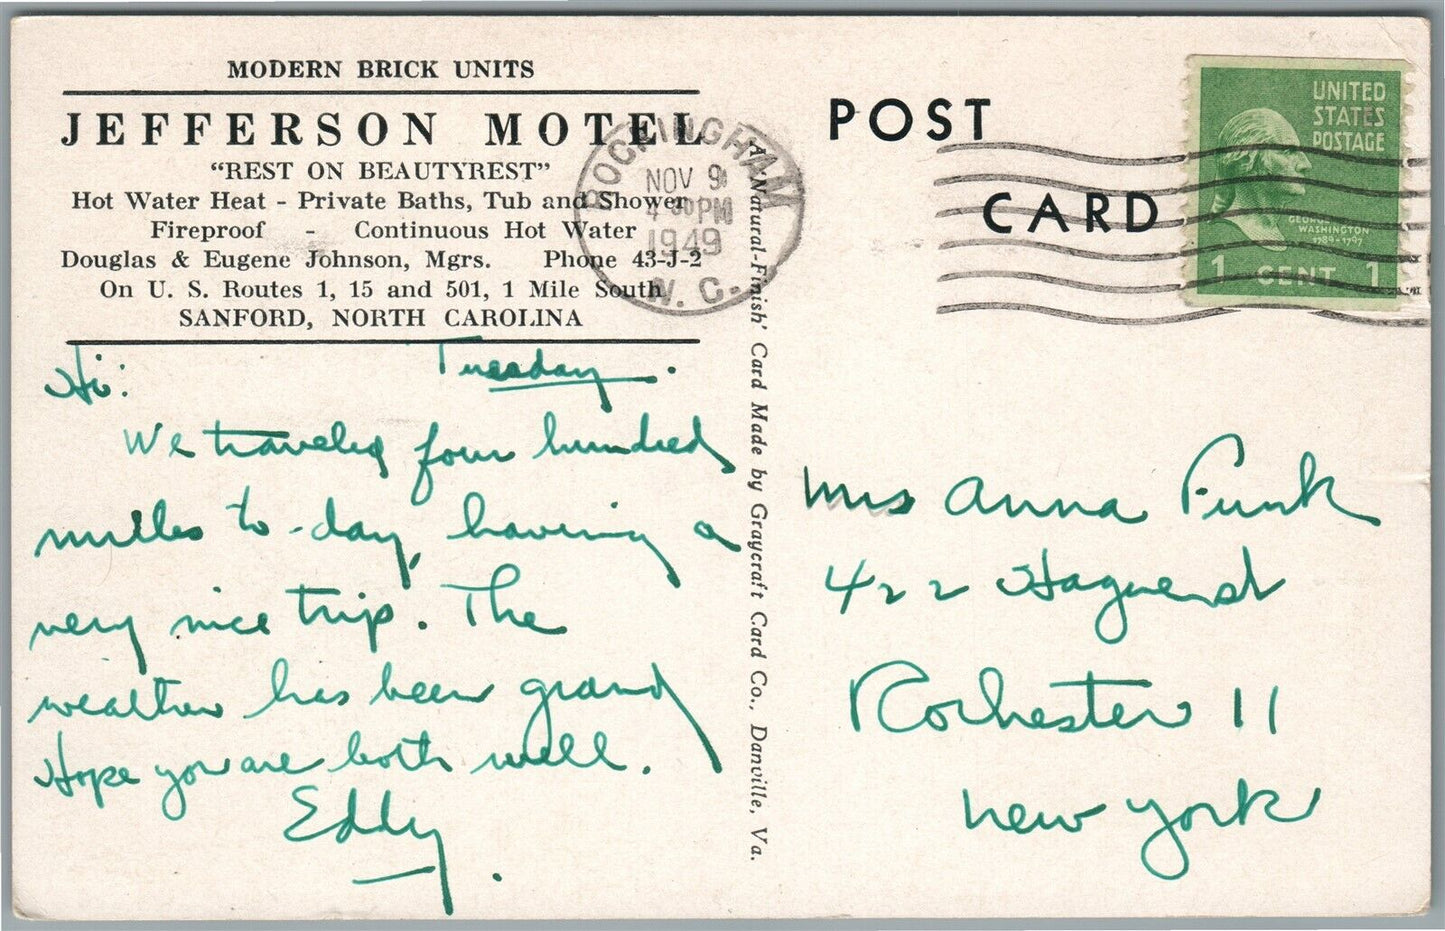 MODERN BRICK UNITS
JEFFERSON MOTEL
"REST ON BEAUTYREST"
Hot Water Heat - Private Baths, Tub and Shower
Fireproof - Continuous Hot Water
Douglas & Eugene Johnson, Mgrs. Phone 43-J-2
On U. S. Routes 1, 15 and 501, 1 Mile South
SANFORD, NORTH CAROLINA
Hi: Tuesday.
We traveled four hundred
miles to-day, having a
very nice trip. The
weather has been grand
Hope you are both well.
Eddy.
A 'Natural-Finish' Card Made by Graycraft Card Co., Danville, Va.
ROCKINGHAM
NOV 9
4 30 PM
1949
N. C.
POST
CARD
UNITED
STATES
POSTAGE
GEORGE
WASHINGTON
1789-1797
1 CENT 1
Mrs Anna Funk
422 Hague st
Rochester 11
New York